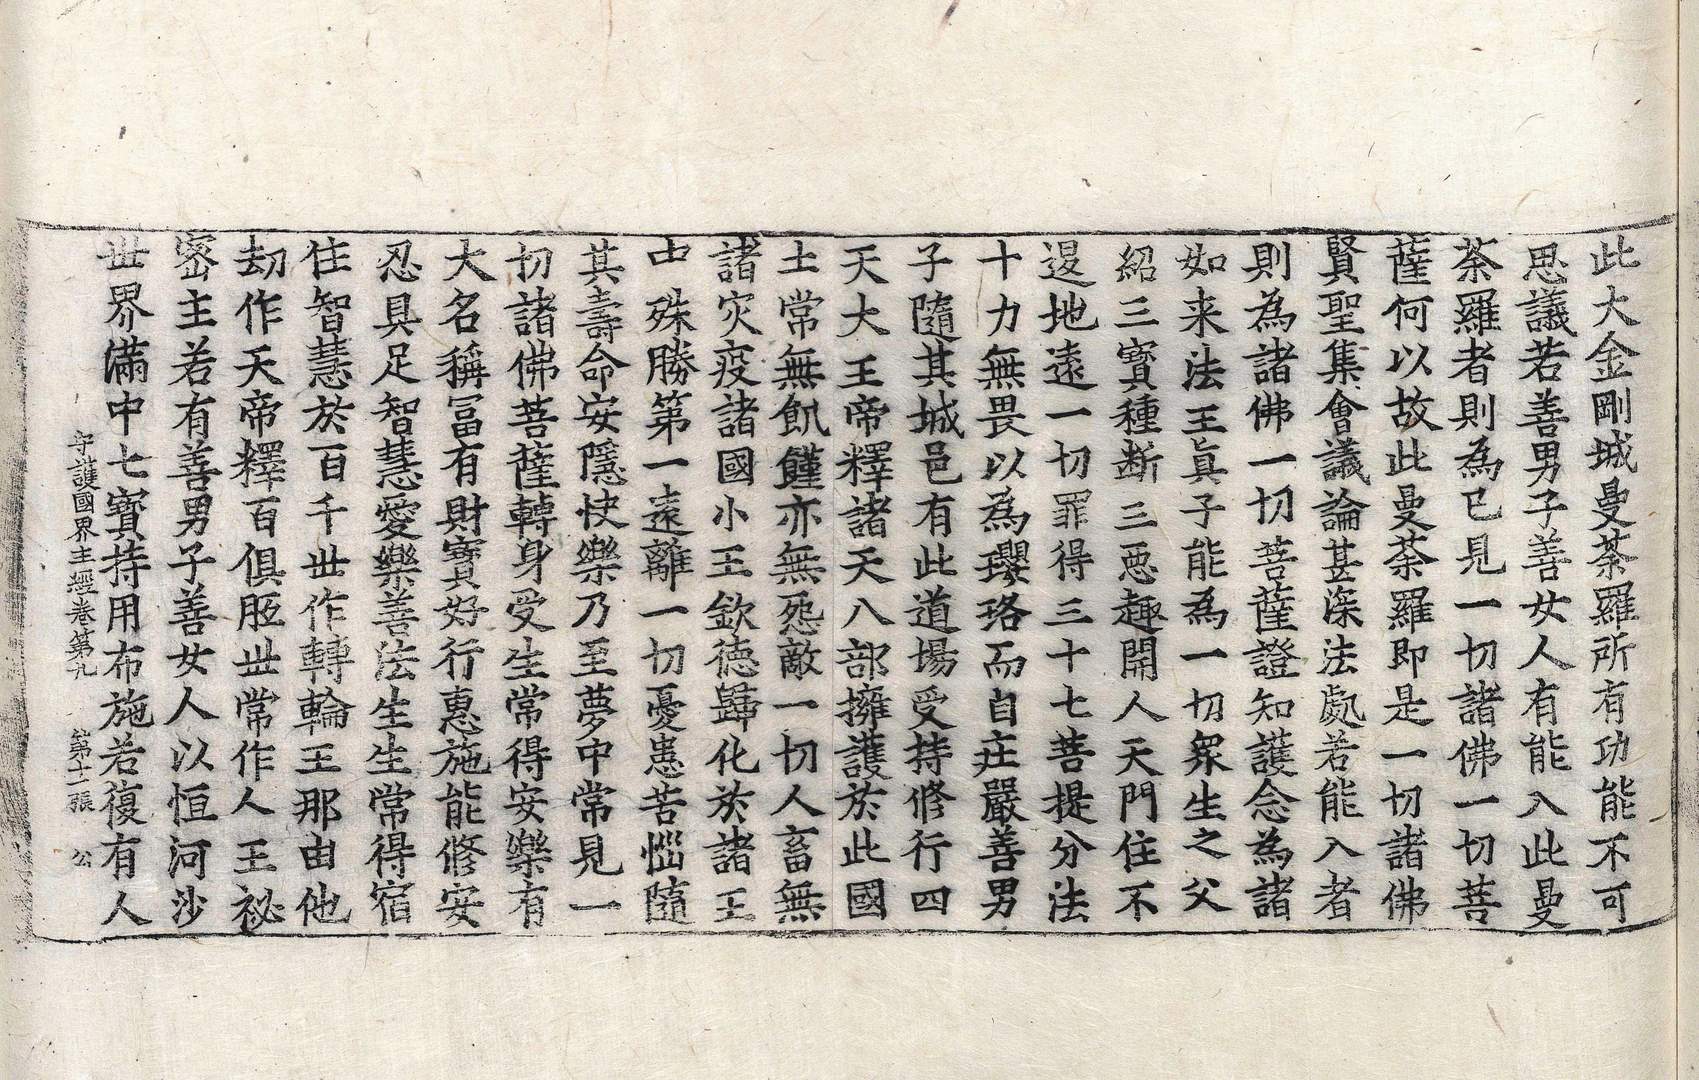 此大金剛城曼荼羅所有功能不可
思議若善男子善女人有能入此曼
荼羅者則為已見一切諸佛一切菩
薩何以故此曼荼羅即是一切諸佛
賢聖集會議論甚深法處若能入者
則為諸佛一切菩薩證知護念為諸
如来法王真子能為一切衆生之父
紹三寶種断三惡趣開人天門住不
退地遠一切罪得三十七菩提分法
十力無畏以為瓔珞而自莊嚴善男
子隨其城邑有此道場受持修行四
天大王帝釋諸天八部擁護於此國
土常無飢饉亦無怨敵一切人畜無
諸灾疫諸國小王欽德歸化於諸王
中殊勝第一遠離一切憂患苦惱隨
其壽命安隱快樂乃至夢中常見一
切諸佛菩薩轉身受生常得安樂有
大名稱冨有財寶好行惠施能修安
忍具足智慧愛樂善法生生常得宿
住智慧於百千世作轉輪王那由他
劫作天帝釋百俱胝世常作人王祕
密主若有善男子善女人以恒河沙
世界滿中七寶持用布施若復有人
守護國界主經卷第九 第十一張 公